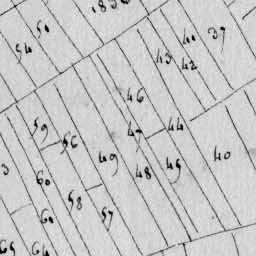 1836
50
54
40
37
43
42
46
47
44
59
56
49
48
45
40
3
60
58
57
60
65
64